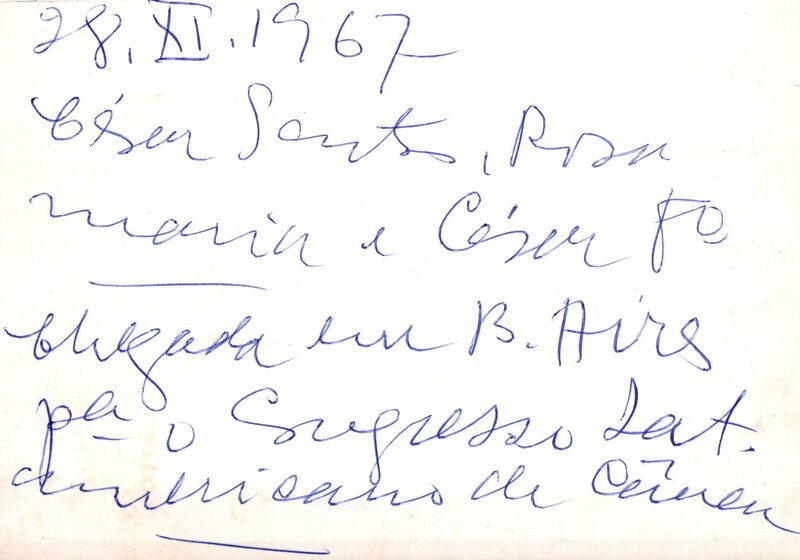 28.XI.1967
César Santos, Rosa
maria e César Fo
chegada em B. Aires
pa o Congresso Lat.
americano de Câncer